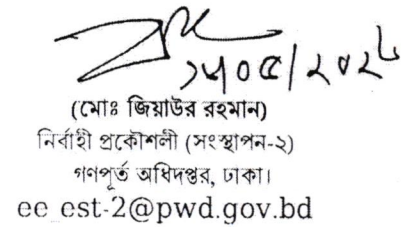 (মোঃ জিয়াউর রহমান)
নির্বাহী প্রকৌশলী (সংস্থাপন-২)
গণপূর্ত অধিদপ্তর, ঢাকা।
ee_est-2@pwd.gov.bd